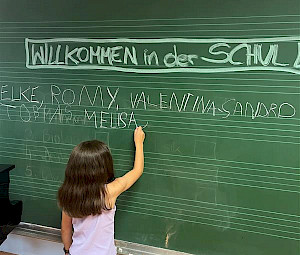 WILLKOMMEN in der SCHUL
ELKE, ROMY, VALENTINA SANDRO
MELISA